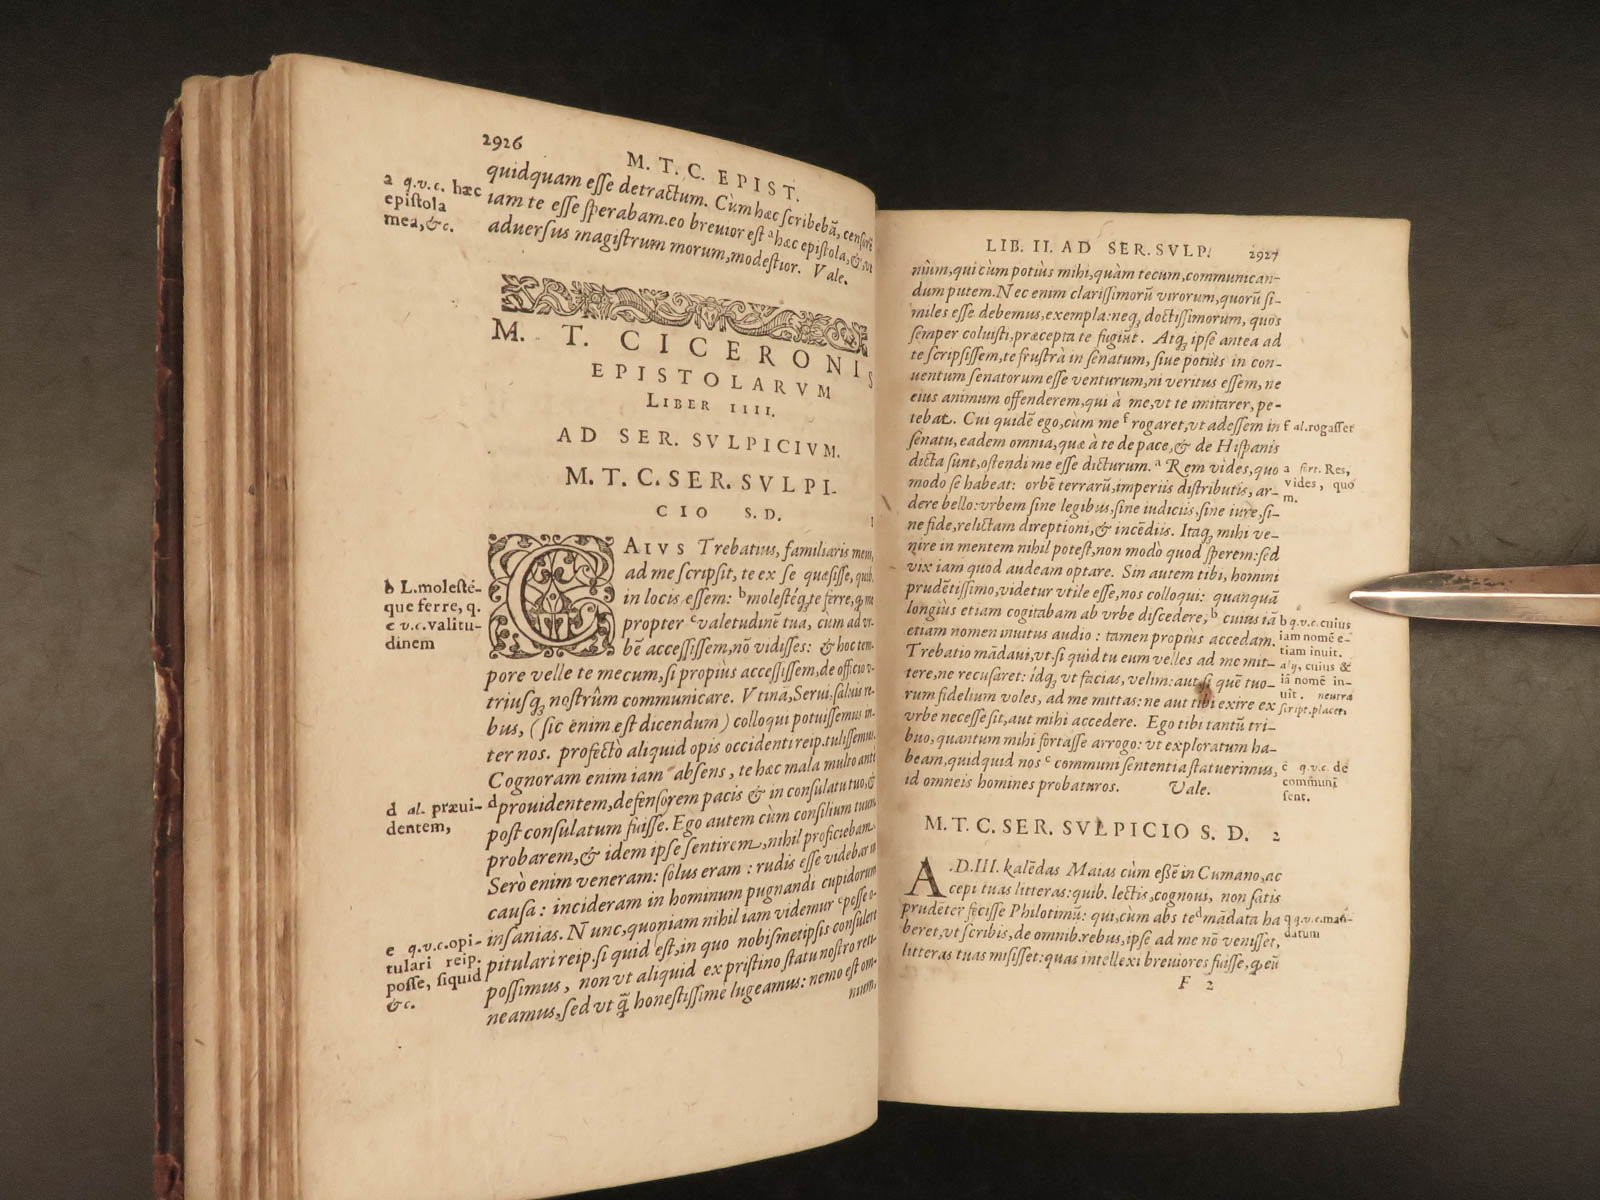 2926
M. T. C. EPIST.
quidquam esse detractum. Cùm hæc scribebã, censorẽ
iam te esse sperabam. eo brevior est ᵃ hæc epistola, &
adversus magistrum morum, modestior. Vale.
a q.v.c. hæc
epistola
mea, &c.
M. T. CICERONIS
EPISTOLARVM
LIBER IIII.
AD SER. SVLPICIVM.
M. T. C. SER. SVLPI-
CIO S. D.
CAIVS Trebatius, familiaris meus,
ad me scripsit, te ex se quæsisse, quib.
in locis essem: ᵇ molestéq; te ferre, q me
propter ᶜ valetudinẽ tua, cùm ad vr-
bẽ accessissem, nõ vidisses: & hoc tem-
pore velle te mecum, si propiùs accessissem, de officio v-
triusq; nostrûm communicare. Vtinã, Serui, saluis re-
bus, (sic enim est dicendum) colloqui potuissemus in-
ter nos. profectò aliquid opis occidenti reip. tulissemus.
Cognoram enim iam absens, te hæc mala multo antè
ᵈ prouidentem, defensorem pacis & in consulatu tuo, &
post consulatum fuisse. Ego autem cùm consilium tuum
probarem, & idem ipse sentirem, nihil proficiebam.
Serò enim veneram: solus eram: rudis esse videbar in
causa: incideram in hominum pugnandi cupidorum
insanias. Nunc, quoniam nihil iam videmur ᵉ posse o-
pitulari reip. si quid est, in quo nobismetipsis consulere
possimus, non vt aliquid ex pristino statu nostro reti-
neamus, sed vt q̃ honestissimè lugeamus: nemo est om-
nium,
b L. molesté-
que ferre, q.
c v.c. valitu-
dinem
d al. præui-
dentem,
e q.v.c. opi-
tulari reip.
posse, siquid
&c.
LIB. II. AD SER. SVLP. 2927
nium, qui cùm potiùs mihi, quàm tecum, communican-
dum putem. Nec enim clarissimorũ virorum, quorũ si-
miles esse debemus, exempla: neq; doctissimorum, quos
semper coluisti, præcepta te fugiũt. Atq; ipse antea ad
te scripsissem, te frustrà in senatum, siue potiùs in con-
uentum senatorum esse venturum, ni veritus essem, ne
eius animum offenderem, qui à me, vt te imitarer, pe-
tebat. Cui quidẽ ego, cùm me ᶠ rogaret, vt adessem in
senatu, eadem omnia, quæ à te de pace, & de Hispanis
dicta sunt, ostendi me esse dicturum. ᵃ Rem vides, quo
modo se habeat: orbẽ terrarũ, imperiis distributis, ar-
dere bello: vrbem sine legibus, sine iudiciis, sine iure, si-
ne fide, relictam direptioni, & incẽdiis. Itaq; mihi ve-
nire in mentem nihil potest, non modò quod sperem: sed
vix iam quod audeam optare. Sin autem tibi, homini
prudẽtissimo, videtur vtile esse, nos colloqui: quanquã
longiùs etiam cogitabam ab vrbe discedere, ᵇ cuius iã
etiam nomen inuitus audio: tamen propiùs accedam.
Trebatio mãdaui, vt, si quid tu eum velles ad me mit-
tere, ne recusaret: idq; vt facias, velim: aut si quẽ tuo-
rum fidelium voles, ad me mittas: ne aut tibi exire ex
vrbe necesse sit, aut mihi accedere. Ego tibi tantũ tri-
buo, quantum mihi fortasse arrogo: vt exploratum ha-
beam, quidquid nos ᶜ communi sententia statuerimus,
id omneis homines probaturos. Vale.
f al. rogasset
a fort. Res,
vides, quo
m.
b q.v.c. cuius
iam nomẽ e-
tiam inuit.
alij, cuius &
iã nomẽ in-
uit. neutra
script. placet.
c q.v.c. de
communi
sent.
M. T. C. SER. SVLPICIO S. D. 2
A.D. III. kalẽdas Maias cùm essẽ in Cumano, ac
cepi tuas litteras: quib. lectis, cognoui, non satis
prudẽter fecisse Philotimũ: qui, cùm abs te ᵈ mãdata ha
beret, vt scribis, de omnib. rebus, ipse ad me nõ venisset,
litteras tuas misisset: quas intellexi breuiores fuisse, q eũ
d q.v.c. man-
datum
F 2